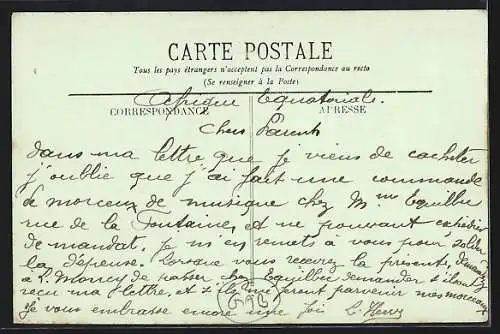 CARTE POSTALE
Tous les pays étrangers n'acceptent pas la Correspondance au recto
(Se renseigner à la Poste)
Afrique Equatoriale.
CORRESPONDANCE ADRESSE
Chers Parents
Dans ma lettre que je viens de cacheter
j'oublie que j'ai fait une commande
de morceaux de musique chez Mme Equilbec
rue de la Fontaine, et ne pouvant expédier
de mandat, je m'en remets à vous pour solder
la dépense. Lorsque vous recevrez la présente, demandez
à L. de passer chez Equilbec demander s'ils ont
recu ma lettre, et s'ils me feront parvenir mes morceaux
Je vous embrasse encore une fois L. Henry